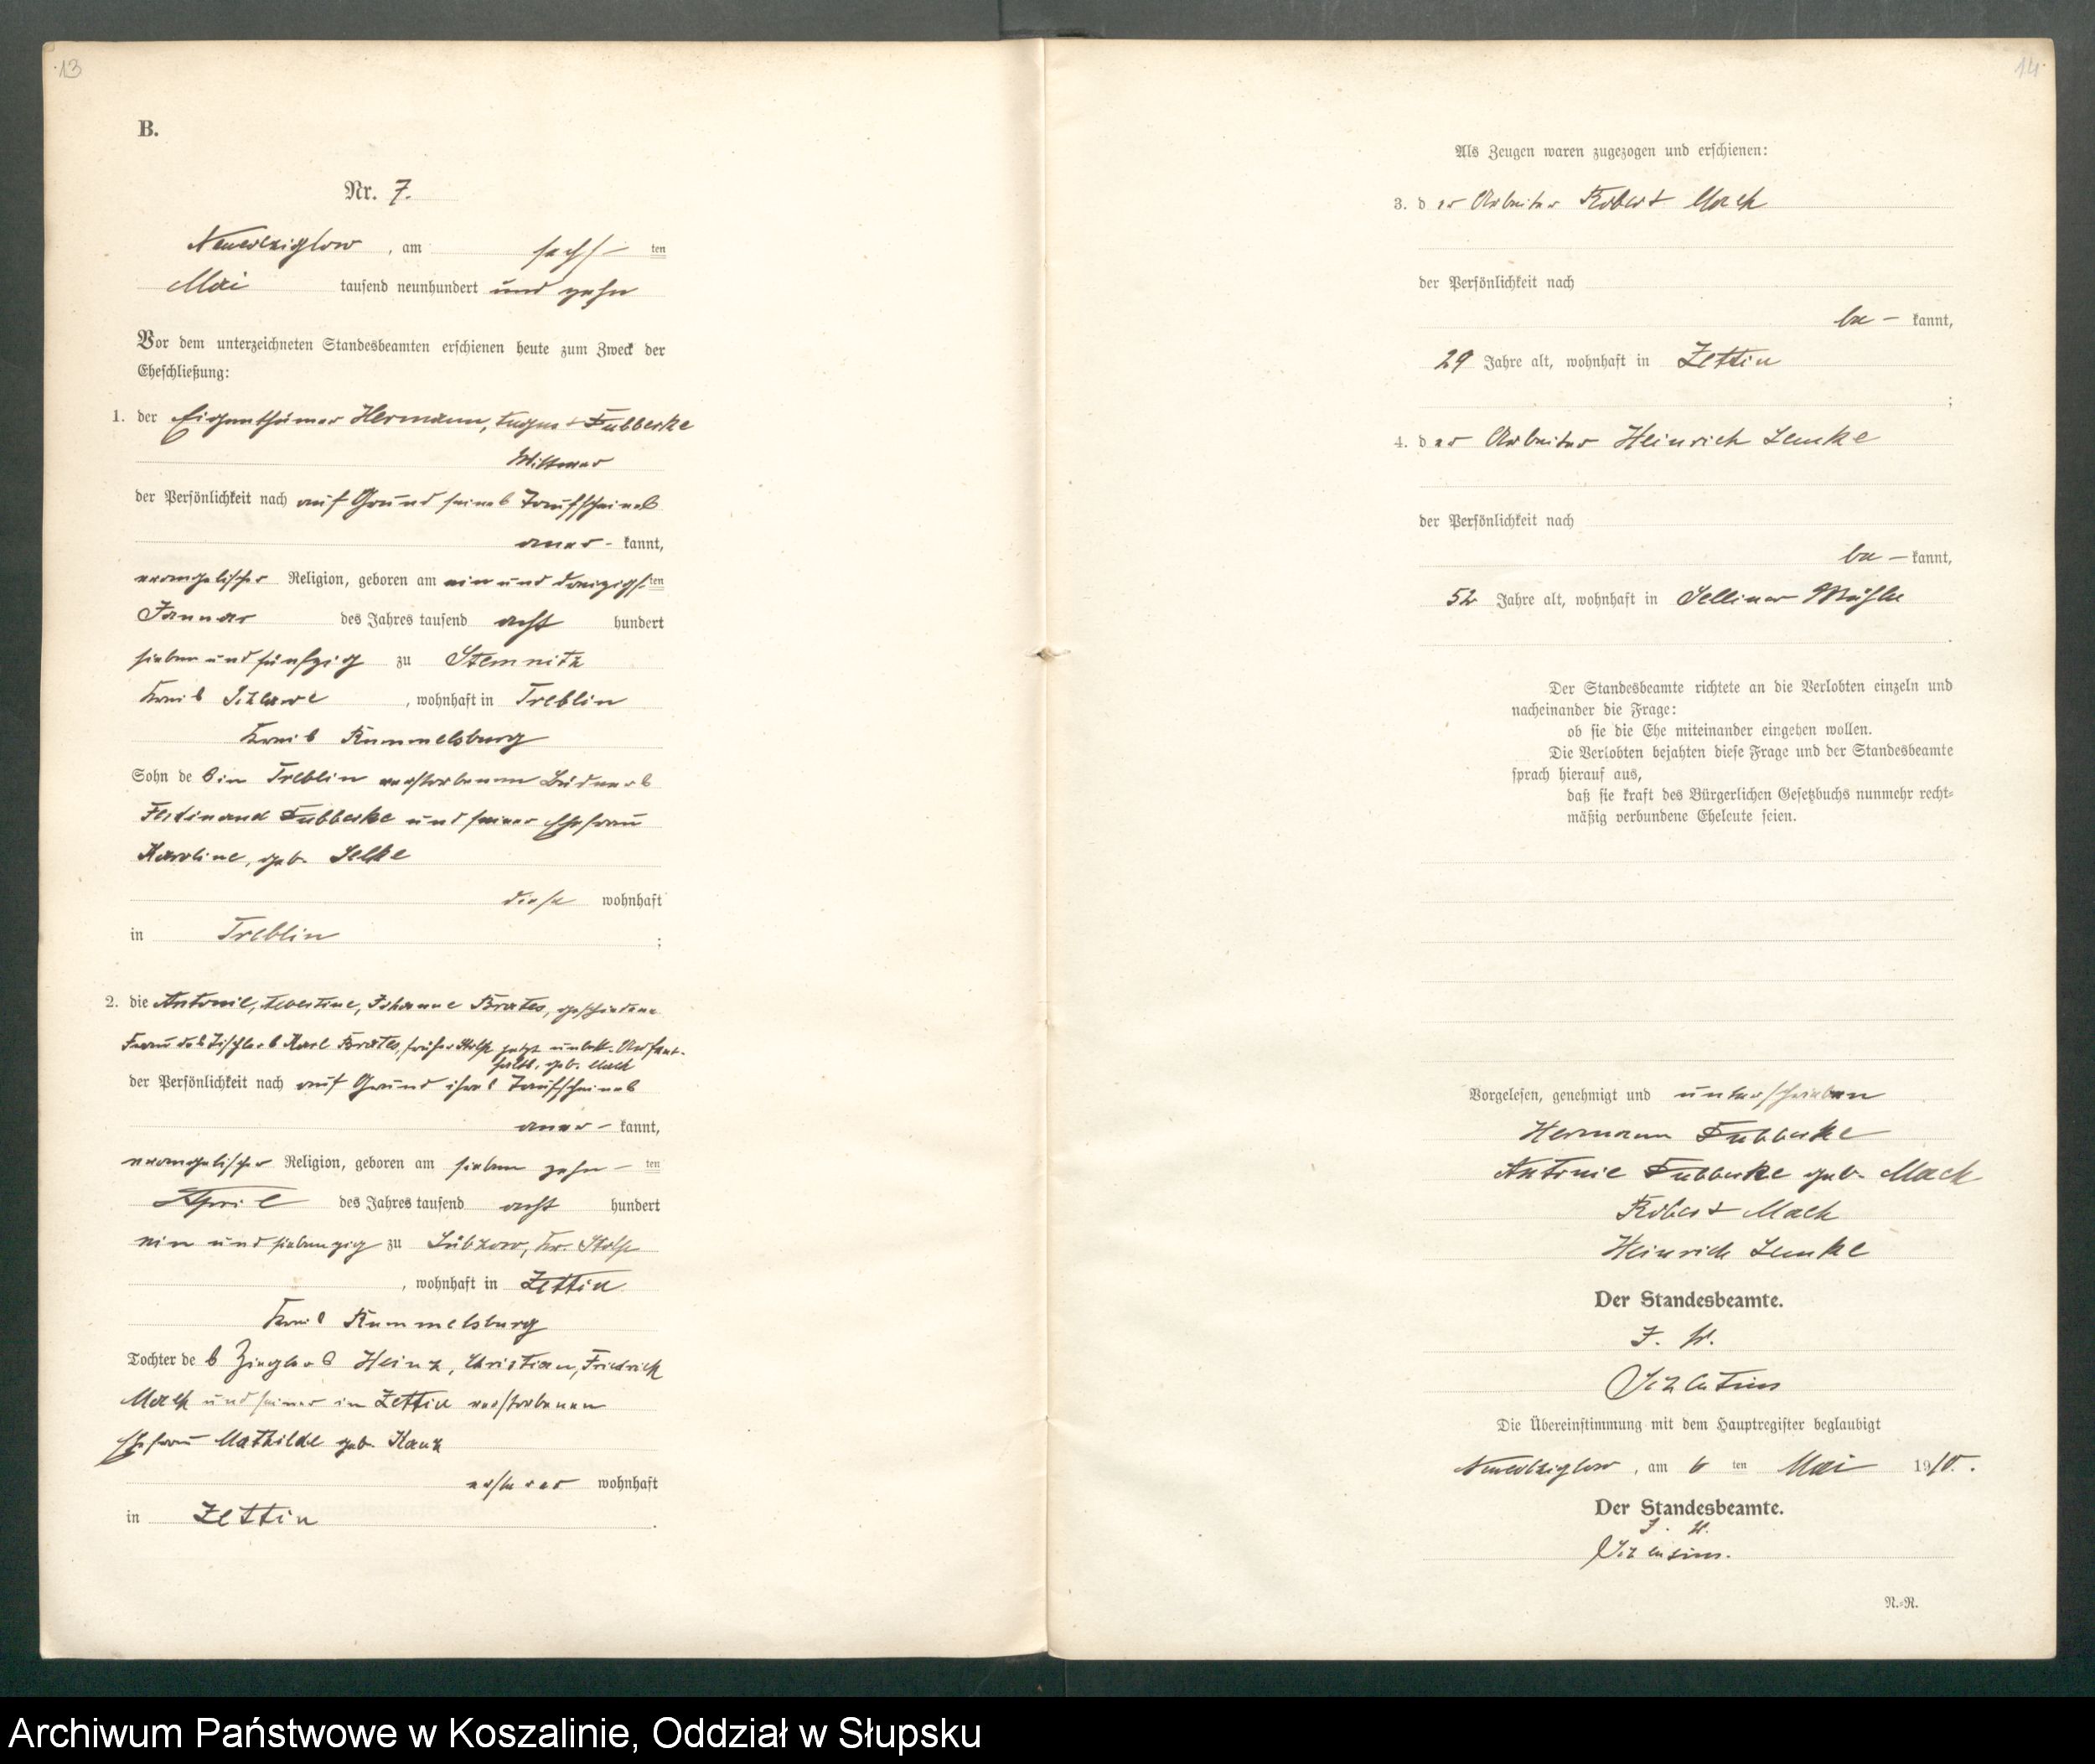 13
B.
Nr. 7.
, am sechs ten
Mai tausend neunhundert und zehn
Vor dem unterzeichneten Standesbeamten erschienen heute zum Zweck der
Eheschließung:
1. der Eigenthümer Hermann, August Dubberke
Wittwer
der Persönlichkeit nach auf Grund seines Taufscheines
aner- kannt,
evangelischer Religion, geboren am ein und dreizigsten
Januar des Jahres tausend acht hundert
sieben und fünfzig zu Stemnitz
Kreis Schlawe , wohnhaft in Treblin
Kreis Rummelsburg
Sohn des in Treblin verstorbenen Büdners
Ferdinand Dubberke und seiner Ehefrau
Karoline, geb. Selke
diese wohnhaft
in Treblin ;
2. die Antonie, Albertine, Johanne Brates, geschiedene
Frau des Tischlers Karl Brates, früher Stolp jetzt unbek. Aufent-
halts, geb. Mach
der Persönlichkeit nach auf Grund ihres Taufscheines
aner- kannt,
evangelischer Religion, geboren am sieben zehn - ten
April des Jahres tausend acht hundert
ein und siebenzig zu Lübzow, Kr. Stolp
, wohnhaft in Zettin
Kreis Rummelsburg
Tochter des Zieglers Heinz, Christian, Friedrich
Mach und seiner in Zettin verstorbenen
Ehefrau Mathilde geb.
ersterer wohnhaft
in Zettin .
14
Als Zeugen waren zugezogen und erschienen:
3. der Arbeiter Robert Mach
der Persönlichkeit nach
be - kannt,
29 Jahre alt, wohnhaft in Zettin
;
4. der Arbeiter Heinrich Lemke
der Persönlichkeit nach
be - kannt,
52 Jahre alt, wohnhaft in Selliner Mühle
.
Der Standesbeamte richtete an die Verlobten einzeln und
nacheinander die Frage:
ob sie die Ehe miteinander eingehen wollen.
Die Verlobten bejahten diese Frage und der Standesbeamte
sprach hierauf aus,
daß sie kraft des Bürgerlichen Gesetzbuchs nunmehr recht-
mäßig verbundene Eheleute seien.
Vorgelesen, genehmigt und unterschrieben
Hermann Dubberke
Antonie Dubberke geb. Mach
Robert Mach
Heinrich Lemke
Der Standesbeamte.
J. V.
Die Übereinstimmung mit dem Hauptregister beglaubigt
, am 6 ten Mai 1910.
Der Standesbeamte.
J. V.
N.-R.
Archiwum Państwowe w Koszalinie, Oddział w Słupsku